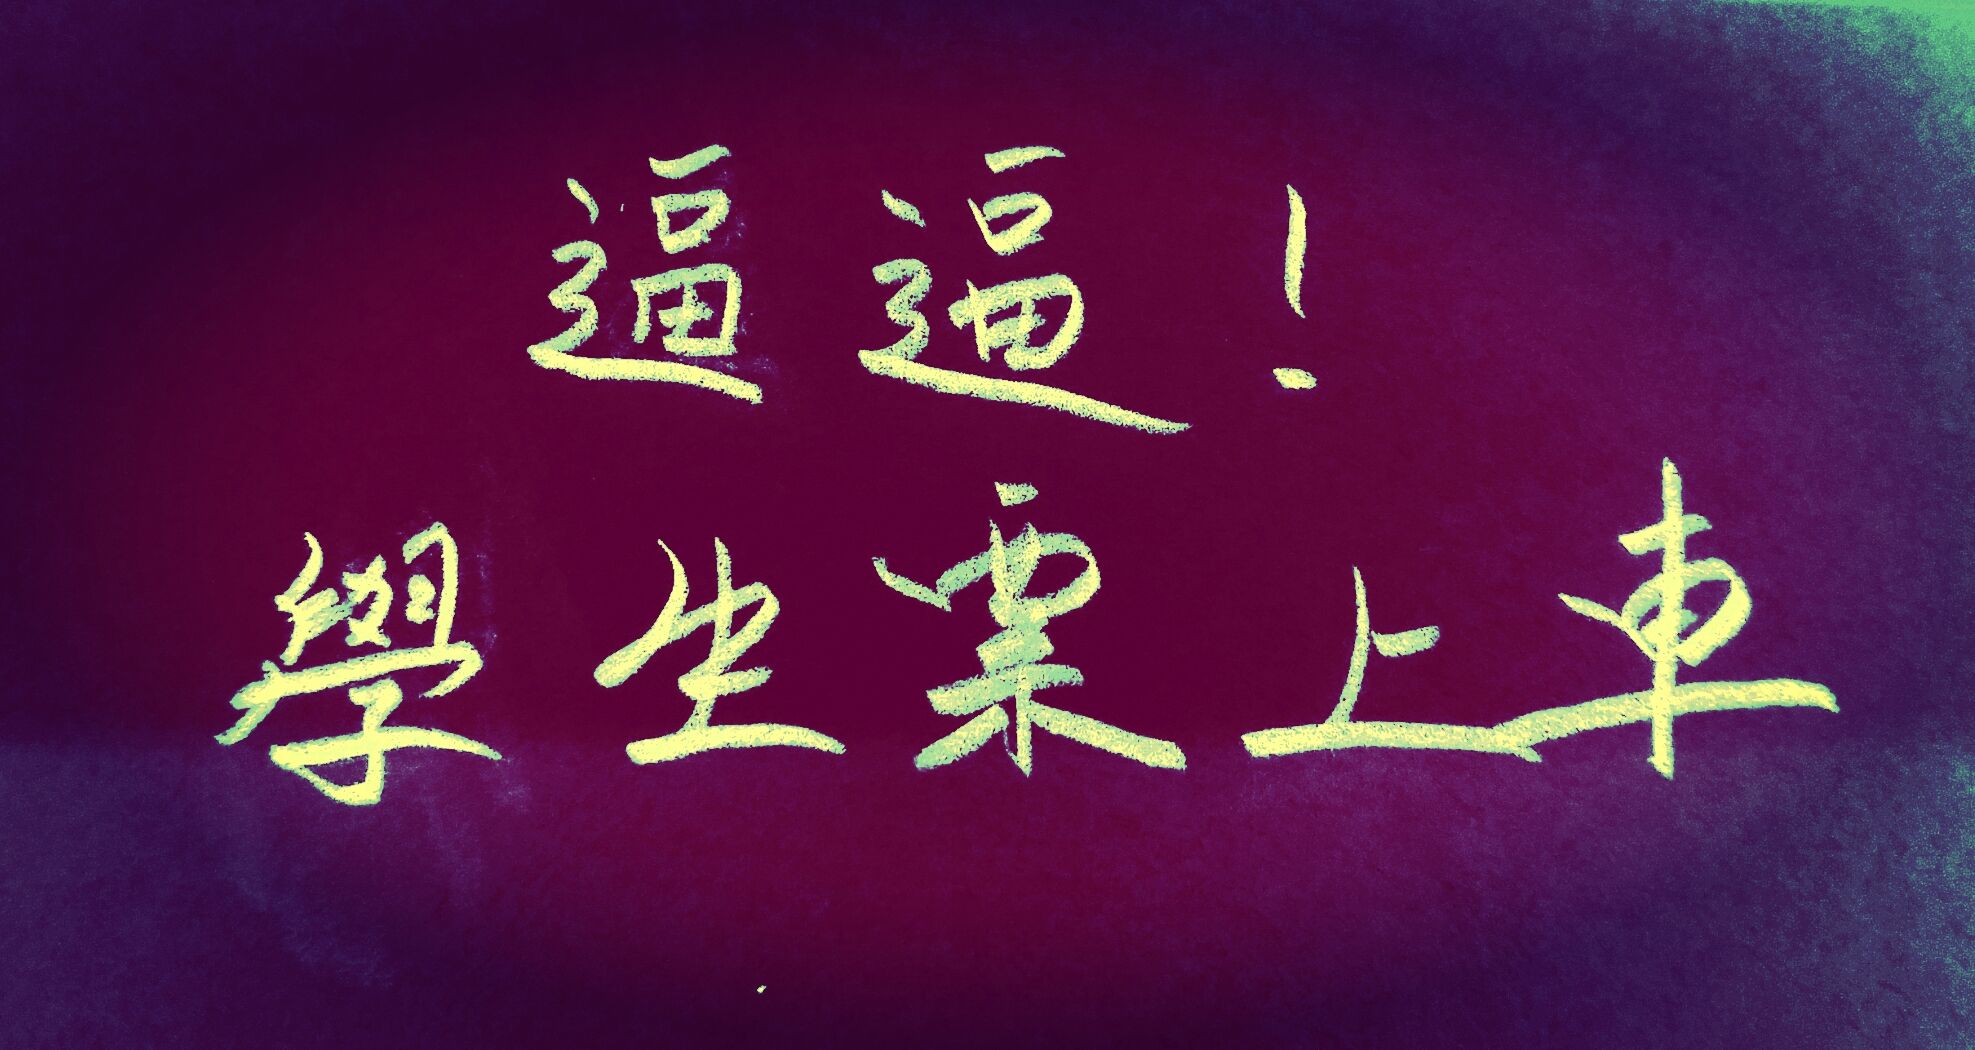 逼逼！
學生票上車